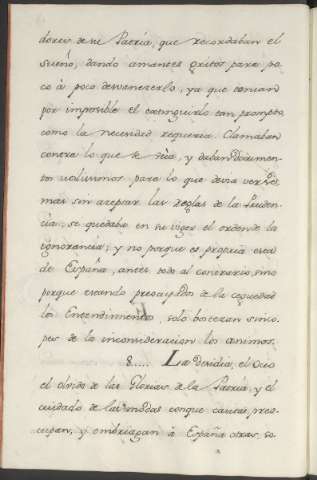 dores de su Patria, que recordaban el
sueño, dando amantes gritos para po
co à poco desvanecerlo, ya que tenian
por imposible el extinguirlo tan prompto,
como la necesidad requeria. Clamaban
contra lo que se veia, y daban documen-
tos utilissimos, para lo que devia verse;
mas sin aceptar las Reglas de la Pruden-
cia, se quedaba en su vigor el orden de la
ignorancia; y no porque es propria esta
de España, antes todo al contrario, sino
porque estando preocupados de la ceguedad
los Entendimientos, solo bostezan sinco-
pes de la inconsideracion los animos.
8..... La Desidia, el Ocio
el olvido de las Glorias de la Patria, y el
cuidado de las modas conque cautas preo-
cupan, y embriagan à España otras, se